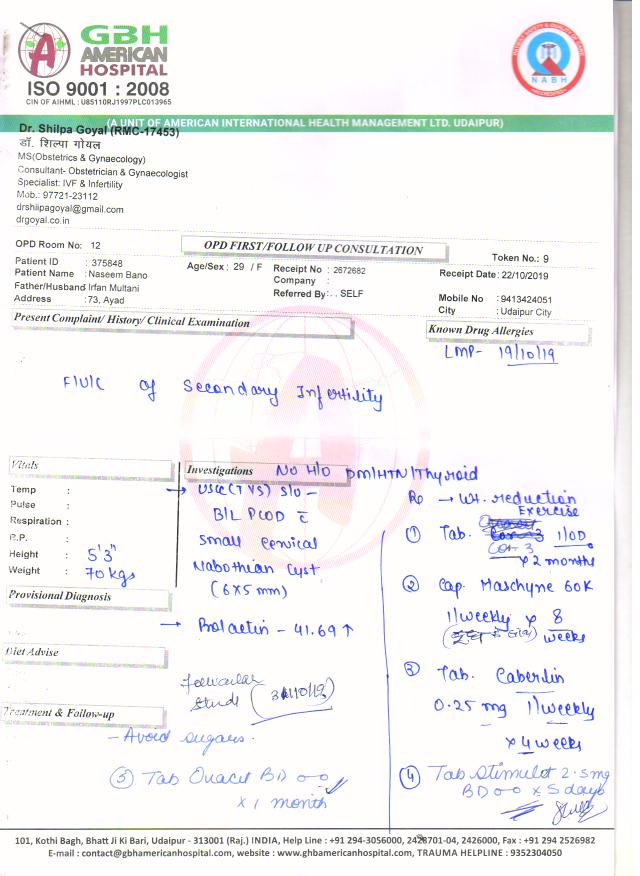 GBH
AMERICAN
HOSPITAL
ISO 9001 : 2008
CIN OF AIHML : U85110RJ1997PLC013965
NABH
(A UNIT OF AMERICAN INTERNATIONAL HEALTH MANAGEMENT LTD. UDAIPUR)
Dr. Shilpa Goyal (RMC-17453)
डॉ. शिल्पा गोयल
MS(Obstetrics & Gynaecology)
Consultant- Obstetrician & Gynaecologist
Specialist: IVF & Infertility
Mob.: 97721-23112
drshilpagoyal@gmail.com
drgoyal.co.in
OPD Room No: 12
OPD FIRST/FOLLOW UP CONSULTATION
Token No.: 9
Patient ID : 375848
Age/Sex : 29 / F
Receipt No : 2672682
Receipt Date: 22/10/2019
Patient Name : Naseem Bano
Company :
Father/Husband Irfan Multani
Referred By: . . SELF
Mobile No : 9413424051
Address : 73, Ayad
City : Udaipur City
Present Complaint/ History/ Clinical Examination
Known Drug Allergies
LMP- 19/10/19
F/U/C of Secondary Infertility
Vitals
Temp :
Pulse :
Respiration :
B.P. :
Height : 5'3"
Weight : 70 kgs
Provisional Diagnosis
Diet Advise
Treatment & Follow-up
Investigations No H/O DM/HTN/Thyroid
→ USG (TVS) S/O -
B/L PCOD c̄
small cervical
Nabothian cyst
(6x5 mm)
→ Prolactin - 41.69 ↑
Follicular
Study
- Avoid sugars.
⑤ Tab BD
x 1 month
Rx → Wt. reduction
Exercise
① Tab. 1/OD
x 2 months
② Cap. Maschyne 60K
1/weekly x 8
weeks
③ Tab. Caberlin
0.25 mg 1/weekly
x 4 weeks
④ Tab Stimulet 2.5mg
BD x 5 days
101, Kothi Bagh, Bhatt Ji Ki Bari, Udaipur - 313001 (Raj.) INDIA, Help Line : +91 294-3056000, 2428701-04, 2426000, Fax : +91 294 2526982
E-mail : contact@gbhamericanhospital.com, website : www.gbhamericanhospital.com, TRAUMA HELPLINE : 9352304050